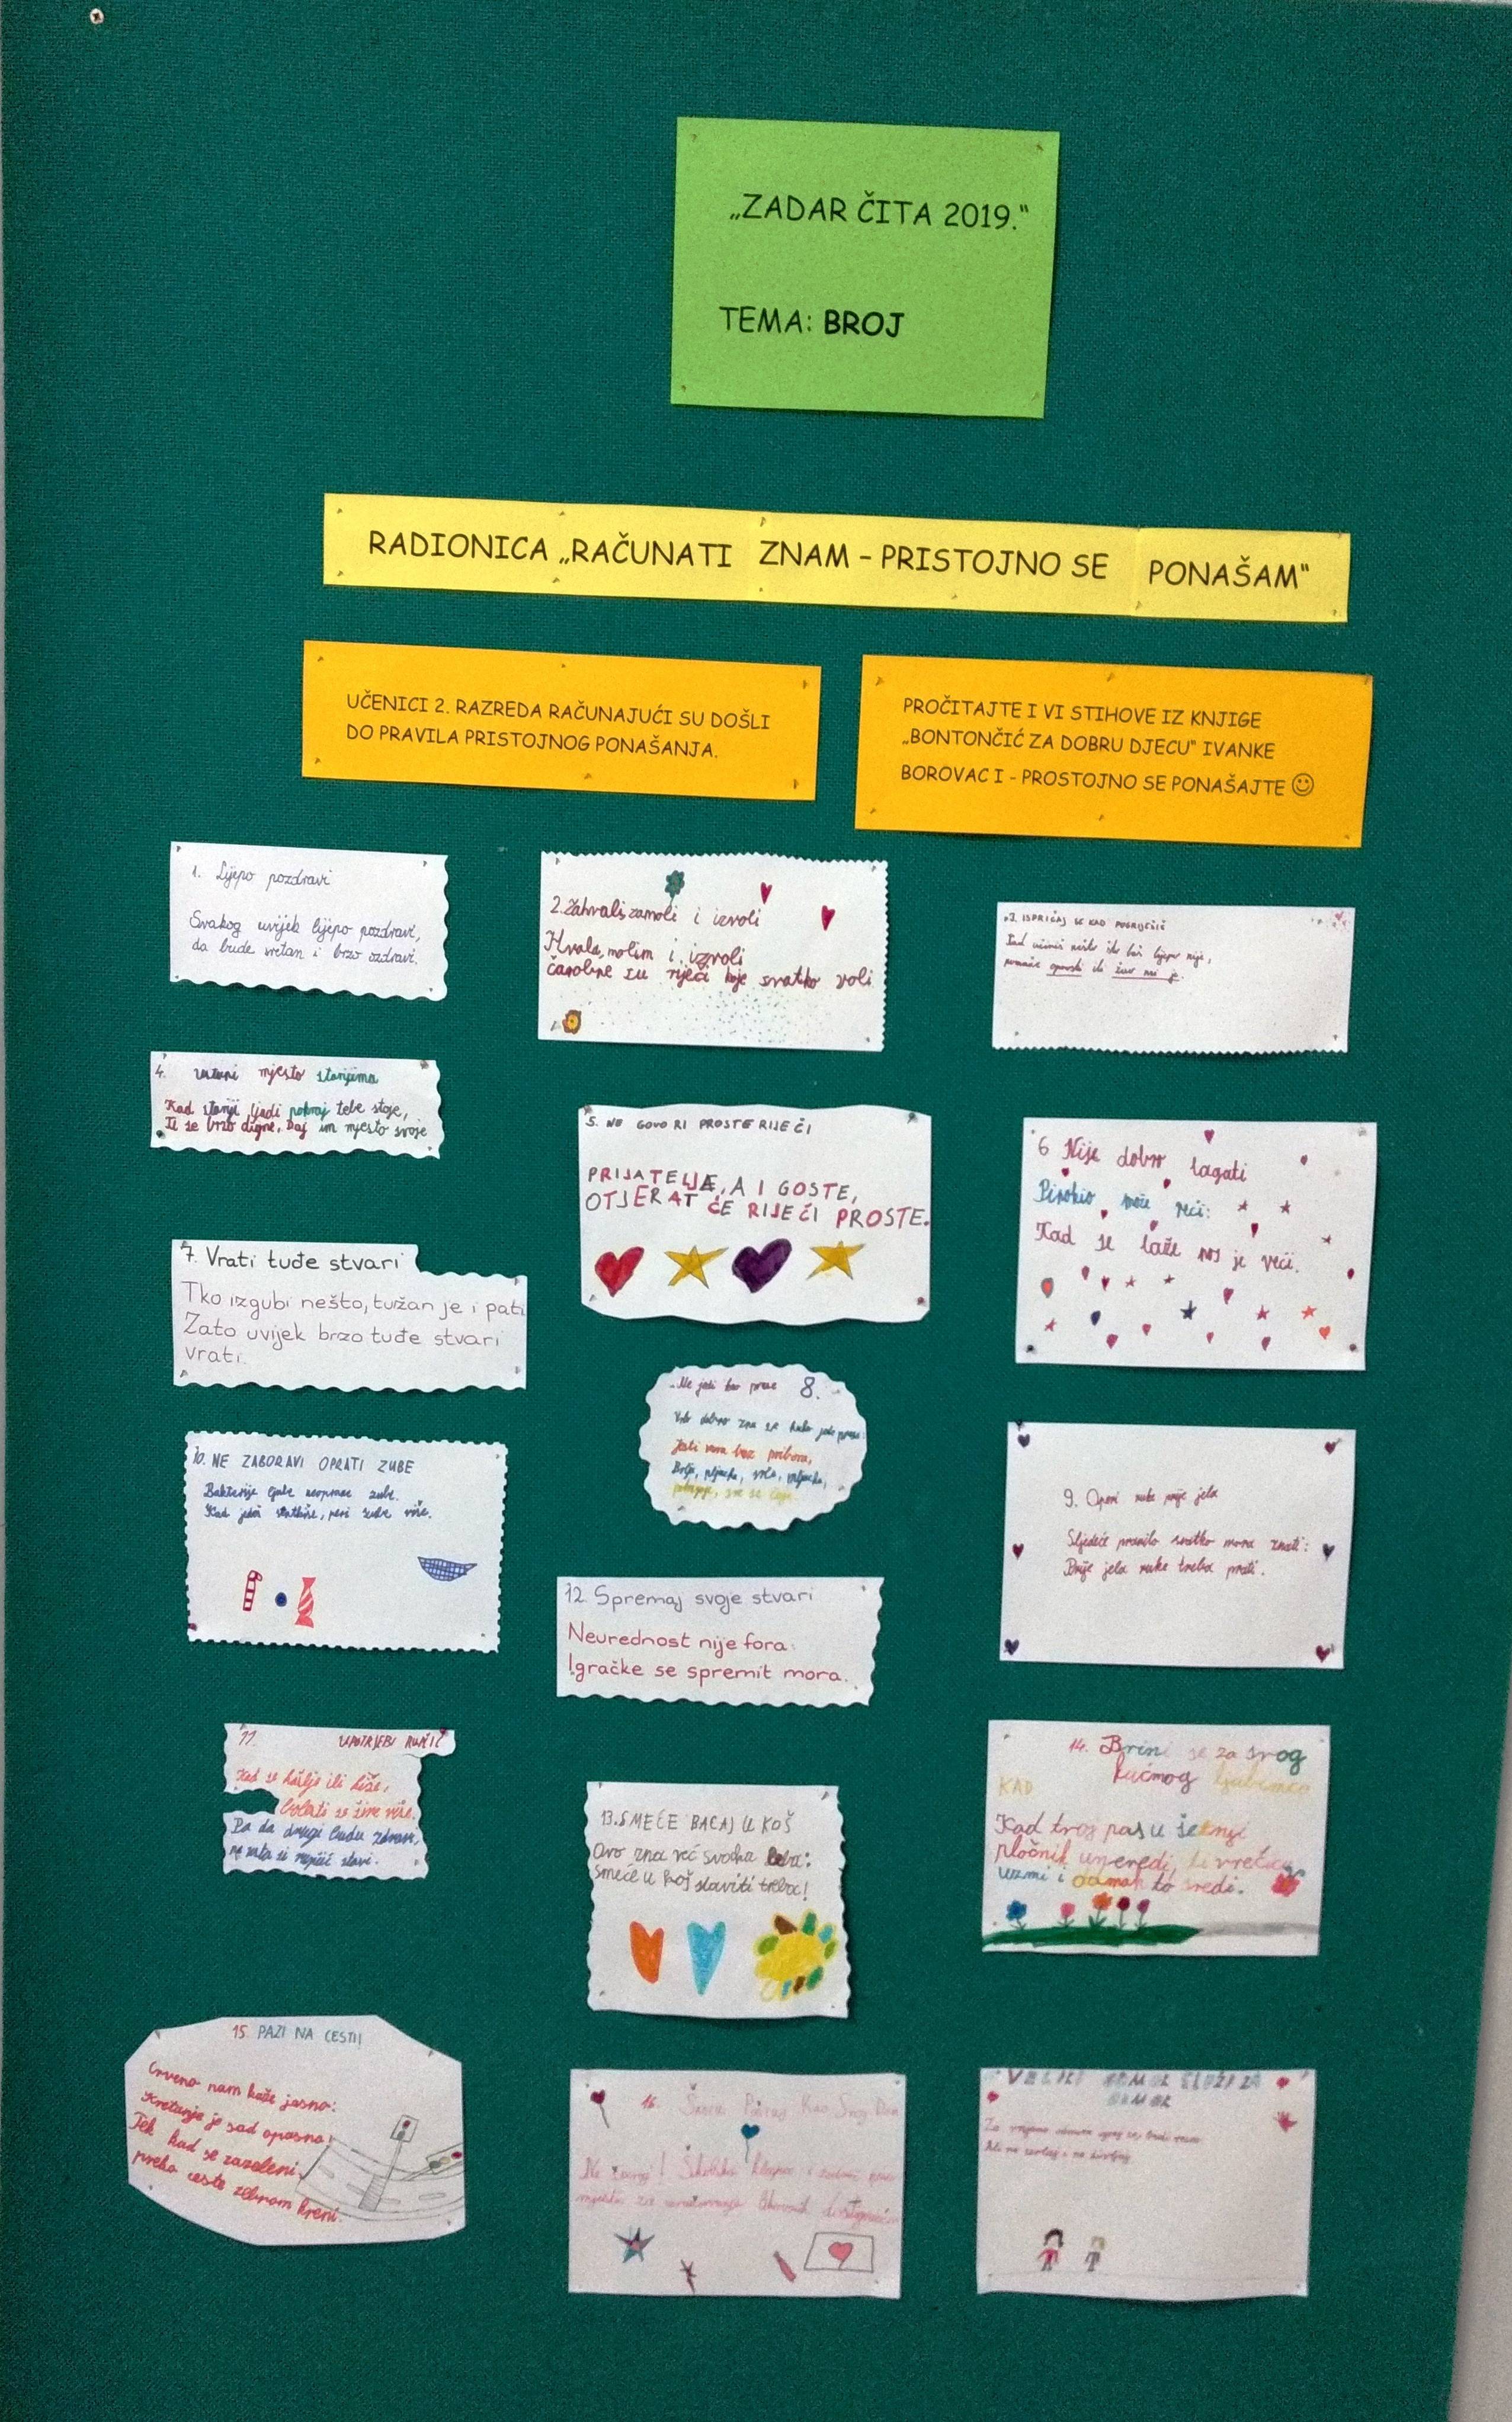 „ZADAR ČITA 2019.“
TEMA: BROJ
RADIONICA „RAČUNATI ZNAM – PRISTOJNO SE PONAŠAM“
UČENICI 2. RAZREDA RAČUNAJUĆI SU DOŠLI
DO PRAVILA PRISTOJNOG PONAŠANJA.
PROČITAJTE I VI STIHOVE IZ KNJIGE
„BONTONČIĆ ZA DOBRU DJECU“ IVANKE
BOROVAC I - PROSTOJNO SE PONAŠAJTE ☺
1. Lijepo pozdravi
Svakog uvijek lijepo pozdravi,
da bude sretan i brzo ozdravi.
2. Zahvali, zamoli i izvoli
Hvala, molim i izvoli
čarobne su riječi koje svatko voli
3. ISPRIČAJ SE KAD POGRIJEŠIŠ
Kad učiniš nešto što baš lijepo nije,
oprosti ili žao mi je.
4. Ustupi mjesto starijima
Kad stariji ljudi pokraj tebe stoje,
Ti se brzo digne, Daj im mjesto svoje
5. NE GOVORI PROSTE RIJEČI
PRIJATELJE, A I GOSTE,
OTJERAT ĆE RIJEČI PROSTE.
6 Nije dobro lagati
Pinokio može reći:
Kad se laže nos je veći.
7. Vrati tuđe stvari
Tko izgubi nešto, tužan je i pati
Zato uvijek brzo tuđe stvari
vrati.
Ne jedi kao prase 8.
Vrlo dobro zna se kako jede prase:
Jesti mora bez pribora,
9. Operi ruke prije jela
Sljedeće pravilo svatko mora znati:
Prije jela ruke treba prati.
10. NE ZABORAVI OPRATI ZUBE
Bakterije ljube neoprane zube.
Kad jedeš slatkiše, peri zube više.
12. Spremaj svoje stvari
Neurednost nije fora:
Igračke se spremit mora.
11. UPOTRIJEBI RUPČIĆ
Kad se kašlje ili kiše,
bolesti se šire više.
Pa da drugi budu zdravi,
na usta si rupčić stavi.
13. SMEĆE BACAJ U KOŠ
Ovo zna već svaka beba:
Smeće u koš staviti treba!
14. Brini se za svog
kućnog ljubimca
KAD
Kad tvoj pas u šetnji
pločnik uneredi, ti vrećicu
uzmi i odmah to sredi.
15. PAZI NA CESTI!
Crveno nam kaže jasno:
Kretanje je sad opasno!
Tek kad se zazeleni,
preko ceste zebrom kreni.
16. Kao Svoj Dom
Ne šaraj! Školske klupe i
VELIKI ODMOR SLUŽI ZA
ODMOR